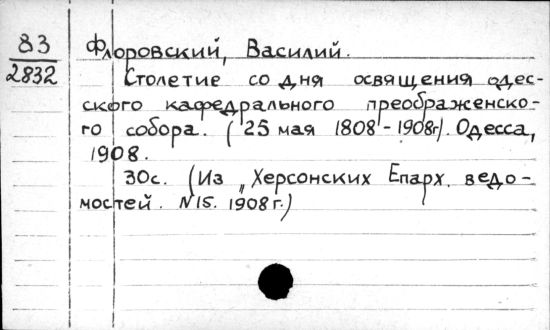 83
2832
Флоровский, Василий.
Столетие со дня освящения одес-
ского кафедрального преображенско-
го собора. (25 мая 1808-1908г). Одесса,
1908.
30с. (Из „Херсонских Епарх. ведо-
мостей. N15. 1908 г.)